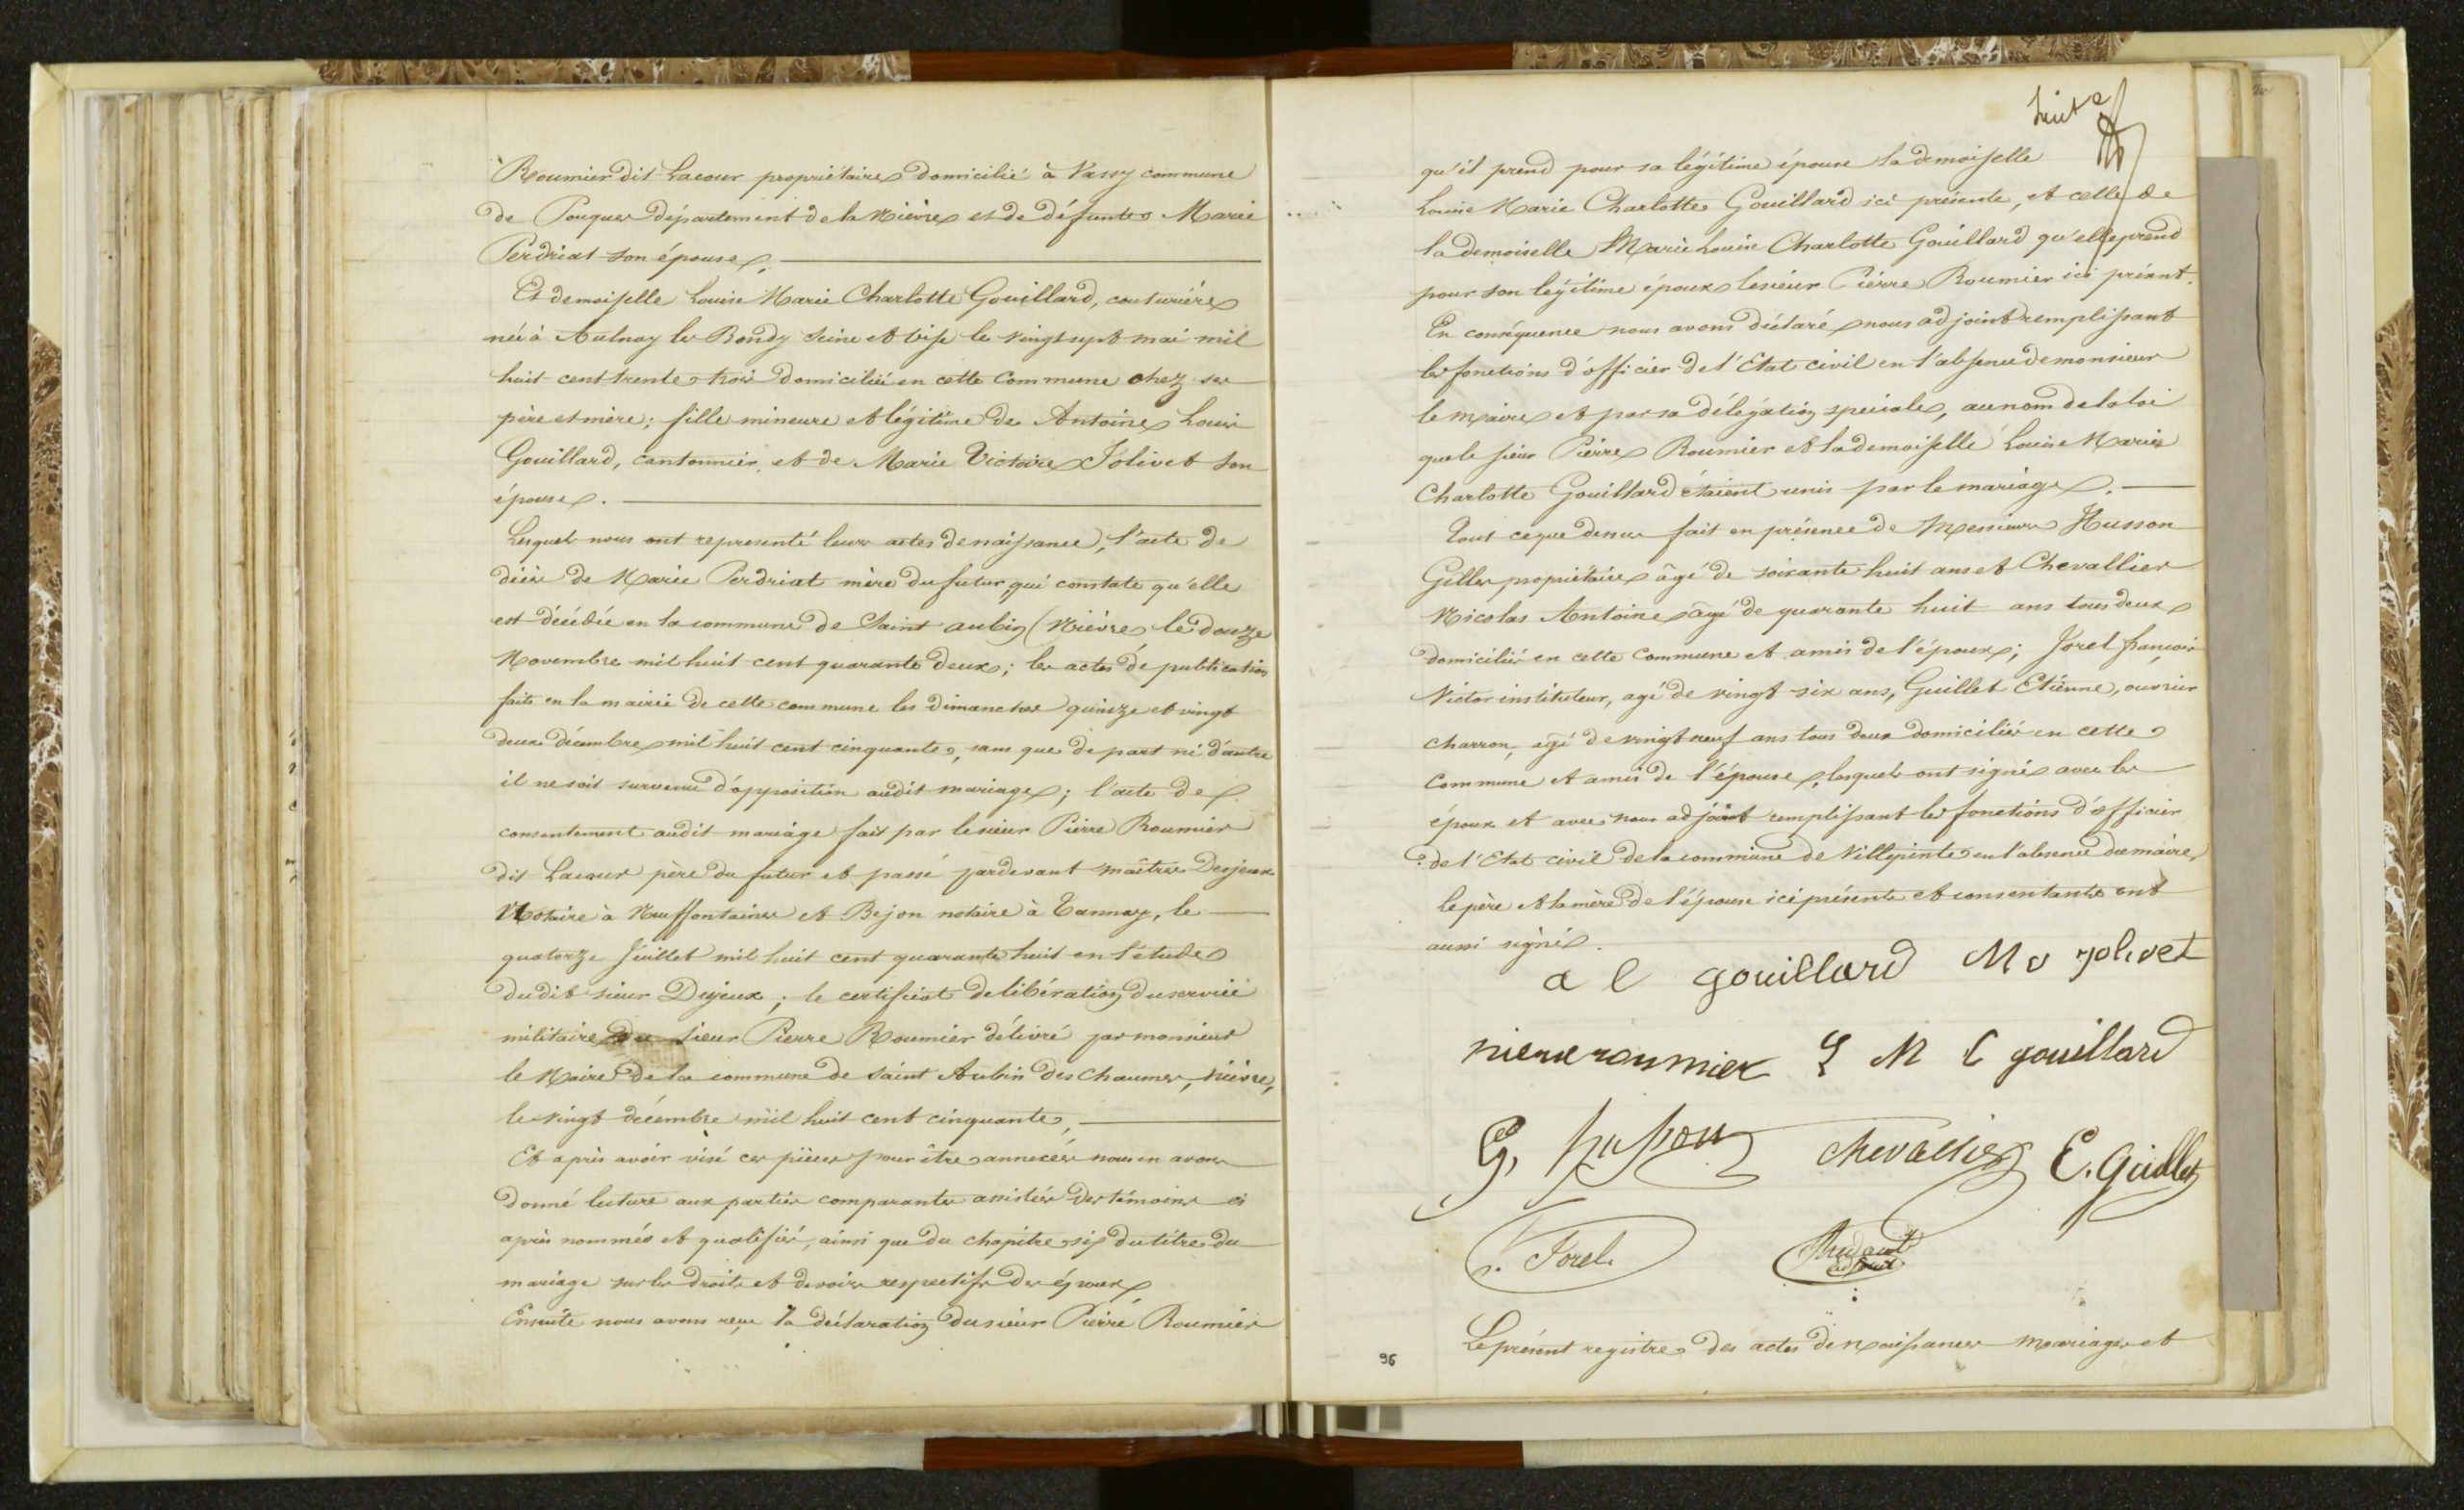 Roumier dit Lacour propriétaire domicilié à Vassy commune
de Pouques département de la Nièvre et de défunte Marie
Perdriat son épouse,
Et demoiselle Louise Marie Charlotte Gouillard, couturière
née à Aulnay les Bondy Seine et Oise le vingt sept mai mil
huit cent trente trois domiciliée en cette commune chez ses
père et mère; fille mineure et légitime de Antoine Louis
Gouillard, cantonnier, et de Marie Victoire Jolivet son
épouse.
Lesquels nous ont representé leurs actes de naissance, l'acte de
décès de Marie Perdriat mère du futur, qui constate qu'elle
est décédée en la commune de Saint aubin (Nièvre le douze
Novembre mil huit cent quarante deux; les actes de publication
faits en la mairie de cette commune les dimanches quinze et vingt
deux décembre mil huit cent cinquante, sans que de part ni d'autre
il ne soit survenu d'opposition audit mariage; l'acte de
consentement audit mariage fait par le sieur Pierre Roumier
dit Lacour père du futur et passé pardevant maîtres Desjeux
Notaire à Neuffontaines et Bejon notaire à Tannay, le
quatorze Juillet mil huit cent quarante huit en l'étude
dudit sieur Dejeux; le certificat de libération du service
militaire du sieur Pierre Roumier délivré par monsieur
le Maire de la commune de Saint Aubin des Chaumes, Nièvre,
le vingt décembre mil huit cent cinquante,
Et après avoir visé ces pièces pour être annexées nous en avons
donné lecture aux parties comparantes assistées des témoins ci
après nommés et qualifiés, ainsi que du chapitre six du titre du
mariage sur les droits et devoirs respectifs des époux
Ensuite nous avons reçu la déclaration du sieur Pierre Roumier
huit
qu'il prend pour sa légitime épouse la demoiselle
Louise Marie Charlotte Gouillard ici présente, et celle de
la demoiselle Marie Louise Charlotte Gouillard qu'elle prend
pour son legitime époux le sieur Pierre Roumier ici présent.
En conséquence nous avons déclaré nous adjoint remplissant
les fonctions d'officier de l'Etat civil en l'absence de monsieur
le maire et par sa délégation speciale, au nom de la loi
que le sieur Pierre Roumier et la demoiselle Louise Marie
Charlotte Gouillard étaient unis par le mariage.
Tout ce que dessus fait en présence de Messieurs Husson
Gilles propriétaire âgé de soixante huit ans et Chevallier
Nicolas Antoine âgé de quarante huit ans tous deux
domiciliés en cette commune et amis de l'époux; Jorel françois
Victor instituteur, agé de vingt six ans, Guillet Etienne, ouvrier
charron, agé de vingt neuf ans tous deux domiciliés en cette
commune et amis de l'épouse, lesquels ont signés avec les
époux et avec nous adjoint remplissant les fonctions d'officier
de l'Etat civil de la commune de Villepinte en l'absence du maire,
le père et la mère de l'épouse ici présents et consentants ont
aussi signés.
a l gouillard M v jolivet
pierre roumier L M C gouillard
G, husson chevallier E. Guillet
Jorel
adjoint
Le présent registre des actes de Naissances mariages et
96